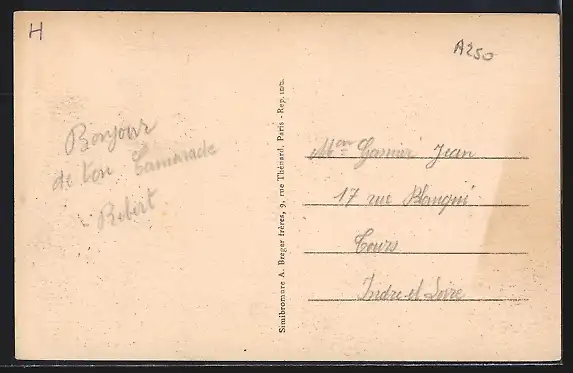 H
A250
Bonjour
de ton Camarade
Robert
Simibromure A. Breger frères, 9, rue Thénard, Paris - Rep. int.
Mon Garnier Jean
17 rue Blanqui
Tours
Indre et Loire